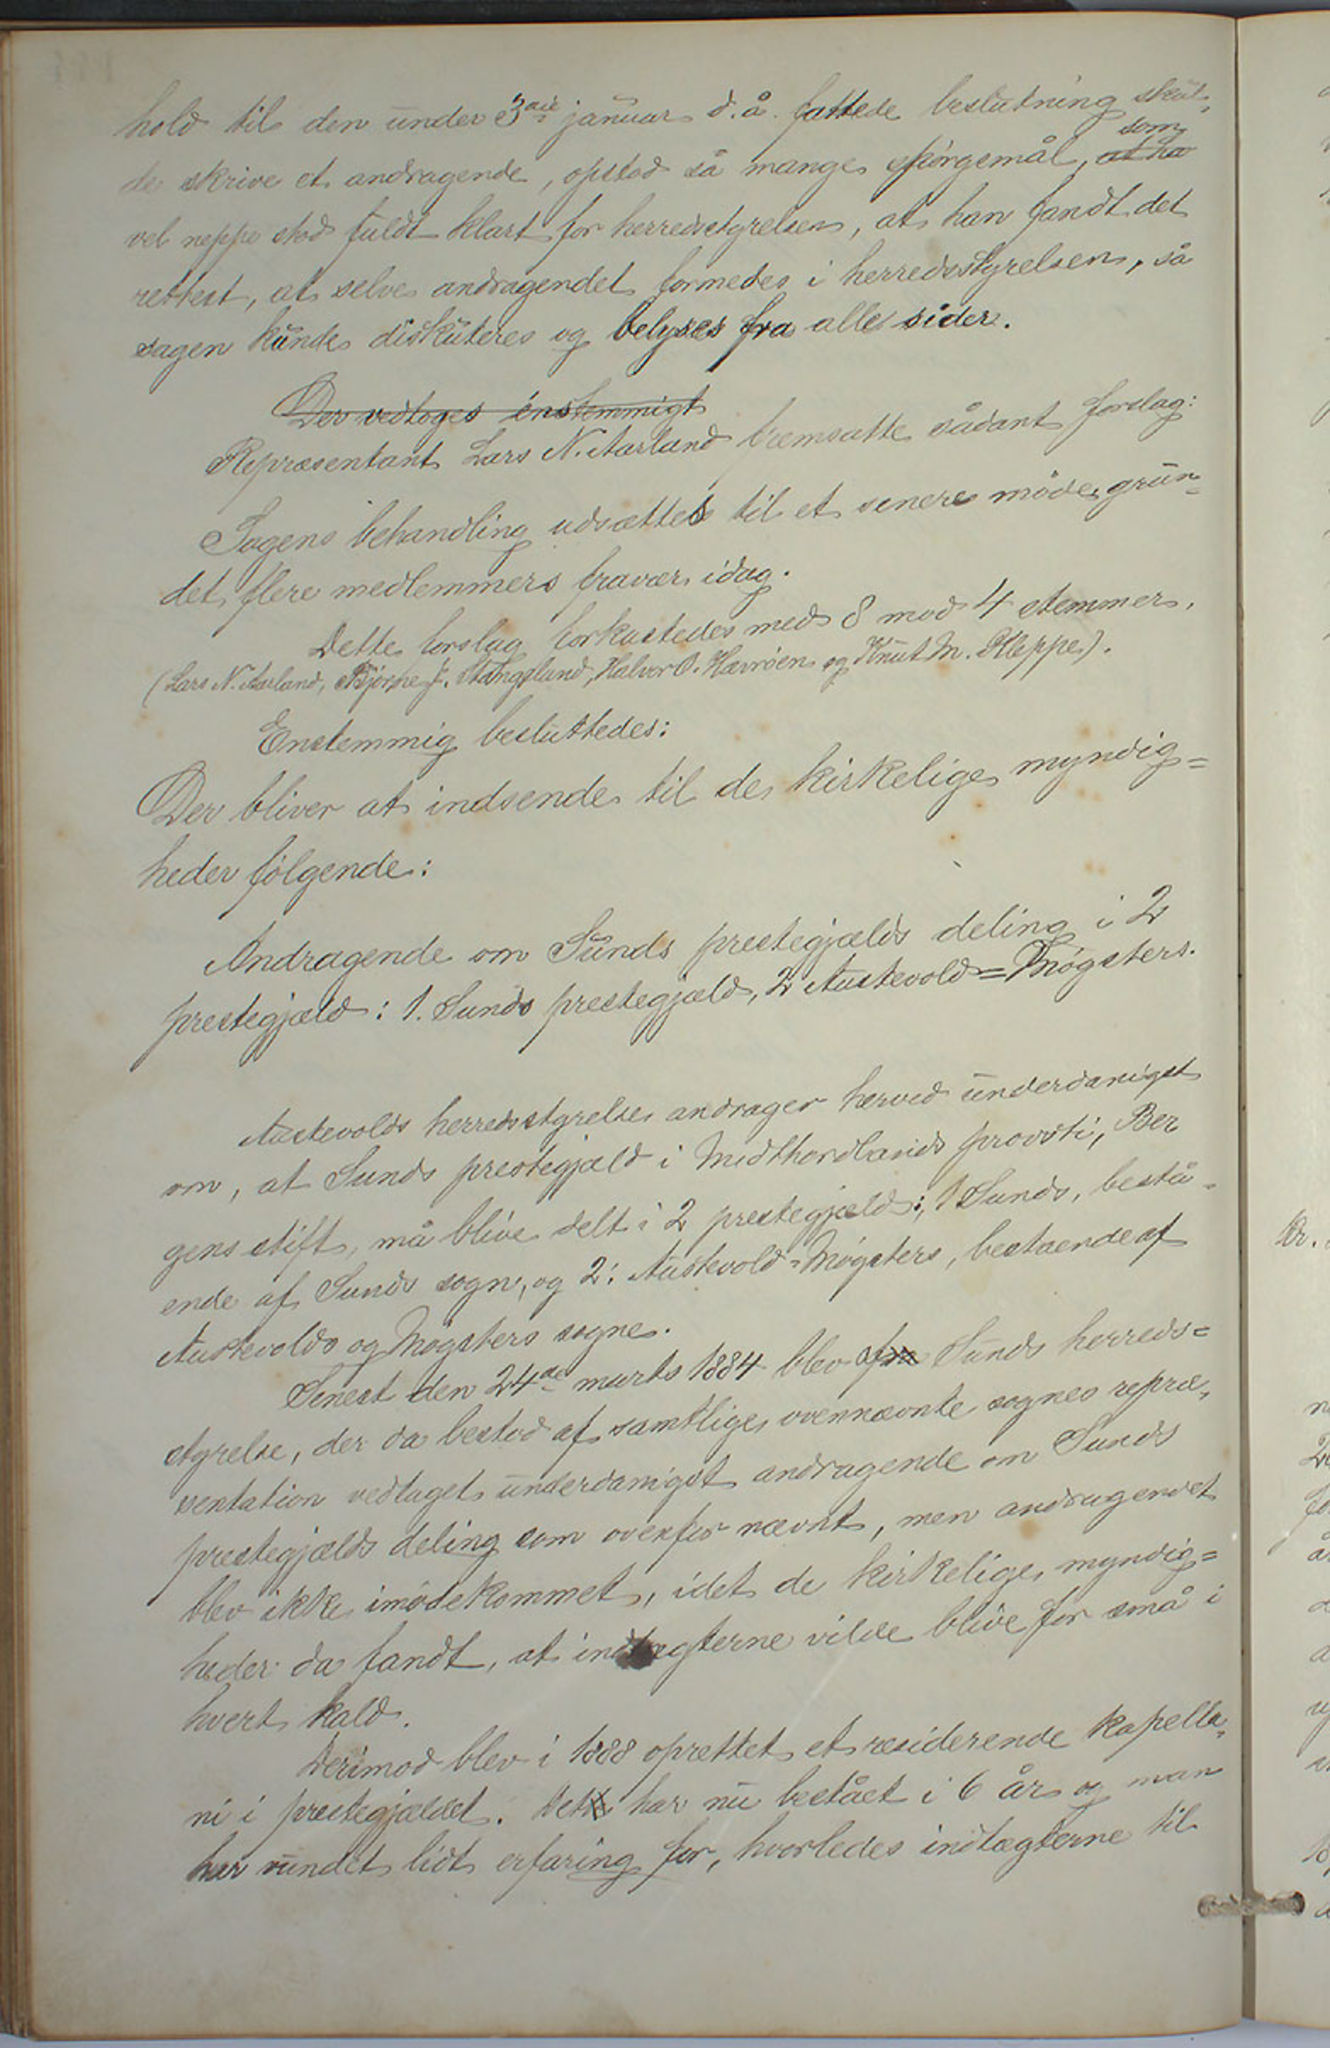 hold til den under 3die januar d.å. fattede beslutning skul-
de skrive et andragende, opstod så mange spörgemål, som
vel neppe stod fuldt klart for herredsstyrelsen, at han fandt det
rettest, at selve andragendet formedes i herredsstyrelsen, så
sagen kunde diskuteres og belyses fra alle sider.
Der vedtoges énstemmigt
Repræsentant Lars N. Aarland fremsatte sådant forslag:
Sagens behandling udsættes til et senere möde, grun-
det flere medlemmers fravær idag.
Dette forslag forkastedes med 8 mod 4 stemmer.
(Lars N. Aarland, Bjørne J. Stangeland, Halvor O. Hævröen og Knut M. Kleppe).
Enstemmig besluttedes:
Der bliver at indsende til de kirkelige myndig=
heder fölgende:
Andragende om Sunds prestegjælds deling i 2
prestegjæld: 1. Sunds prestegjæld, 2 Austevold=Møgsters.
Austevolds herredsstyrelse andrager herved underdanigst
om, at Sunds prestegjæld i Midthordlands provsti, Ber
gens stift, må blive delt i 2 prestegjæld:, 1 Sunds, bestå-
ende af Sunds sogn, og 2: Austevold=Møgsters, bestaende af
Austevolds og Møgsters sogne.
Senest den 24de marts 1884 blev af Sunds herreds=
styrelse, der da bestod af samtlige ovennævnte sognes repræ-
sentation vedtaget underdanigst andragende om Sunds
prestegjælds deling som ovenfor nævnt, men andragendet
blev ikke imödekommet, idet de kirkelige myndig=
heder da fandt, at indtægterne vilde blive for små i
hvert kald.
Derimod blev i 1888 oprettet et residerende kapella-
ni i prestegjældet. Det har nu bestået i 6 år og man
har vundet lidt erfaring for, hvorledes indtægterne til